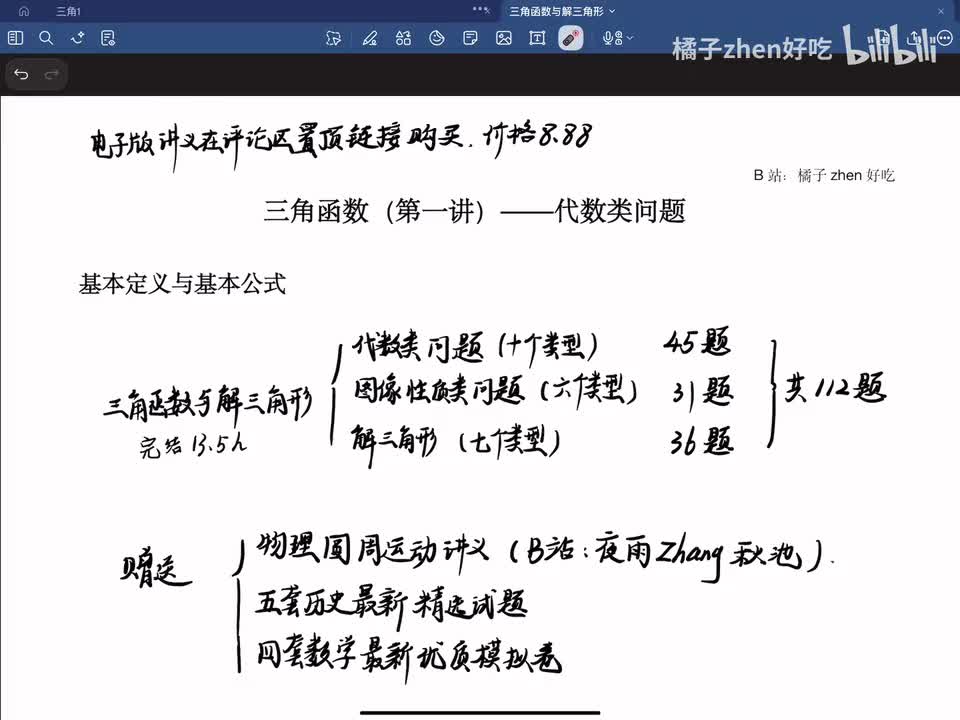 三角1
三角函数与解三角形
橘子zhen好吃 bilibili
电子版讲义在评论区置顶链接购买.价格8.88
B 站：橘子 zhen 好吃
三角函数（第一讲）——代数类问题
基本定义与基本公式
代数类问题（十个类型） 45题
三角函数与解三角形 图像性质类问题（六个类型） 31题 共112题
完结 13.5h 解三角形（七个类型） 36题
赠送 物理圆周运动讲义（B站：夜雨Zhang秋池）.
五套历史最新精选试题
四套数学最新优质模拟卷